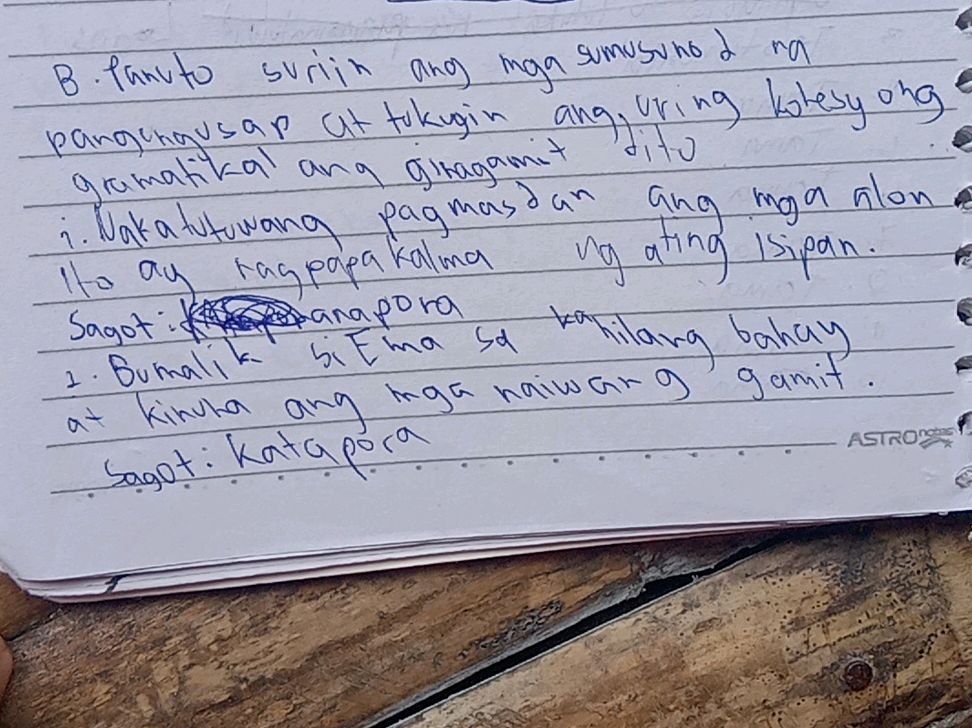 B. Panuto suriin ang mga sumusunod na
pangungusap at tukugin ang uring kohesyong
gramatikal ang ginagamit dito
1. Nakatutuwang pagmasdan ang mga alon
Ito ay nagpapakalma ng ating isipan.
Sagot: anapora
2. Bumalik si Ema sa kanilang bahay
at kinuha ang mga naiwang gamit.
Sagot: Katapora
ASTRO notes